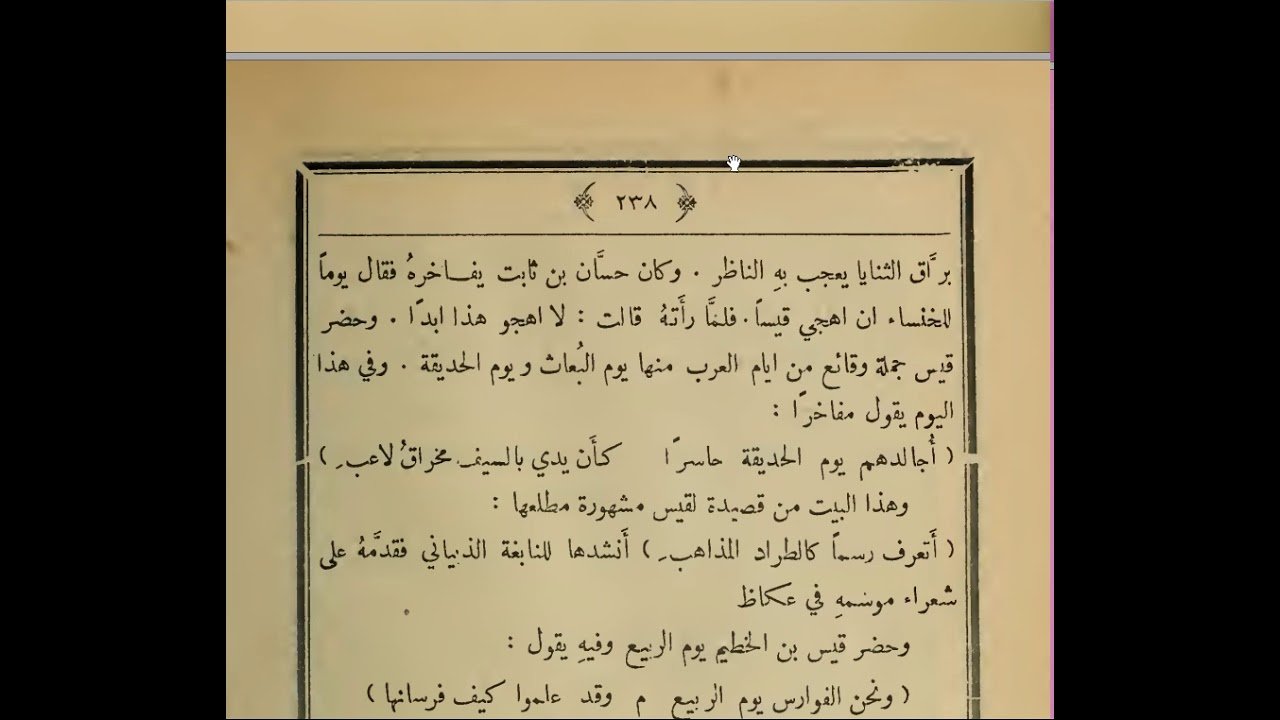 ٢٣٨
برَّاق الثنايا يعجب بهِ الناظر . وكان حسَّان بن ثابت يفاخرهُ فقال يوماً
للخنساء ان اهجي قيساً . فلمَّا رأَتهُ قالت : لا اهجو هذا ابدًا . وحضر
قيس جملة وقائع من ايام العرب منها يوم البُعاث ويوم الحديقة . وفي هذا
اليوم يقول مفاخرًا :
( أُجالدهم يوم الحديقة حاسرًا كأَن يدي بالسيف مخراقُ لاعبِ )
وهذا البيت من قصيدة لقيس مشهورة مطلعها :
( أَتعرف رسماً كالطراد المذاهبِ ) أَنشدها للنابغة الذبياني فقدَّمهُ على
شعراء موسمهِ في عكاظ
وحضر قيس بن الخطيم يوم الربيع وفيهِ يقول :
( ونحن الفوارس يوم الربيع م وقد علموا كيف فرسانها )